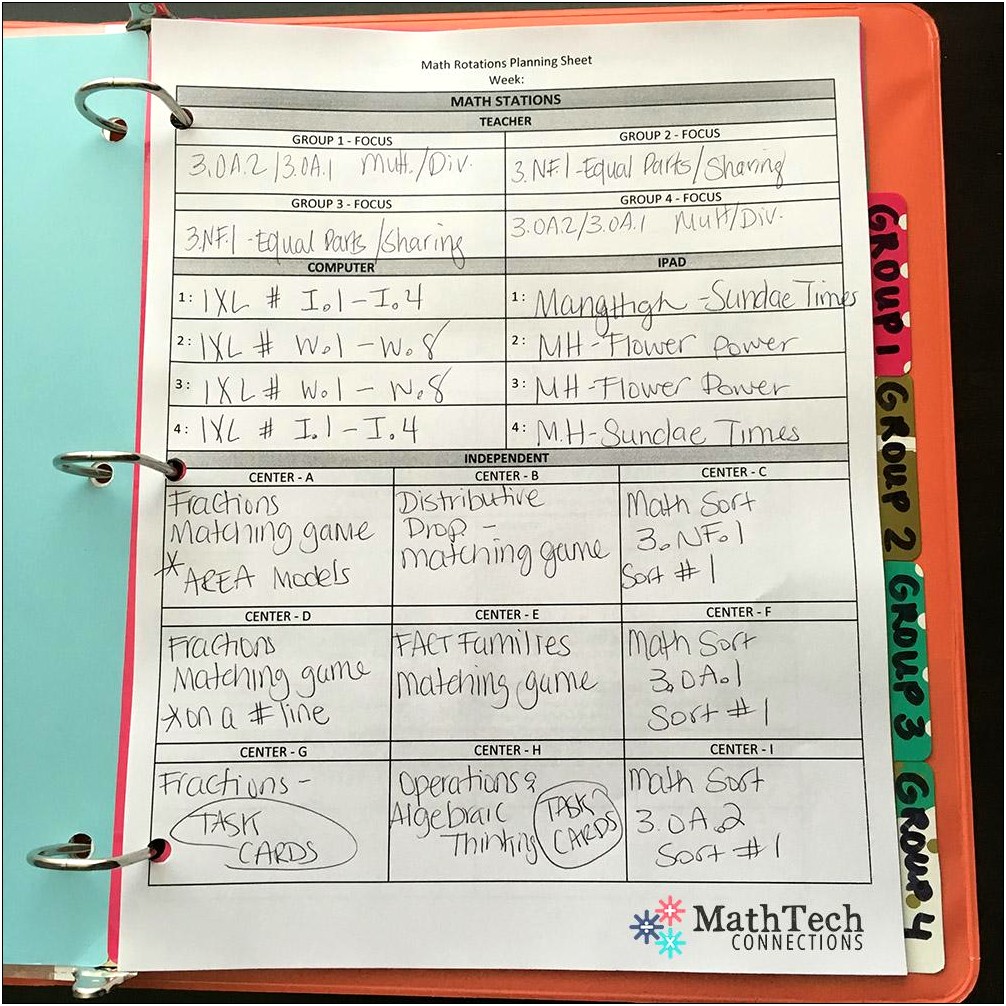 Math Rotations Planning Sheet
Week:
MATH STATIONS
TEACHER
GROUP 1 - FOCUS
3.OA.2/3.OA.1 Mult./Div.
GROUP 2 - FOCUS
3.NF.1-Equal Parts/Sharing
GROUP 3 - FOCUS
3.NF.1-Equal Parts/Sharing
GROUP 4 - FOCUS
3.OA.2/3.OA.1 Mult/Div.
COMPUTER
1: IXL # I.1-I.4
2: IXL # W.1-W.8
3: IXL # W.1-W.8
4: IXL # I.1-I.4
IPAD
1: Mangahigh-Sundae Times
2: MH-Flower Power
3: MH-Flower Power
4: M.H-Sundae Times
INDEPENDENT
CENTER - A
Fractions
Matching game
* AREA Models
CENTER - B
Distributive
Drop -
matching game
CENTER - C
Math Sort
3.NF.1
Sort #1
CENTER - D
Fractions
Matching game
*on a #line
CENTER - E
FACT Families
matching game
CENTER - F
Math Sort
3.OA.1
Sort #1
CENTER - G
Fractions -
TASK
CARDS
CENTER - H
Operations &
Algebraic
Thinking
TASK
CARDS
CENTER - I
Math Sort
3.OA.2
Sort #1
GROUP 1
GROUP 2
GROUP 3
GROUP 4
MathTech
CONNECTIONS